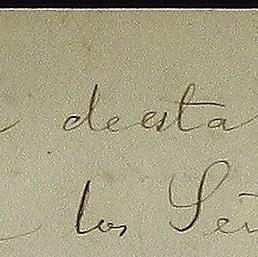 de esta
los Señ